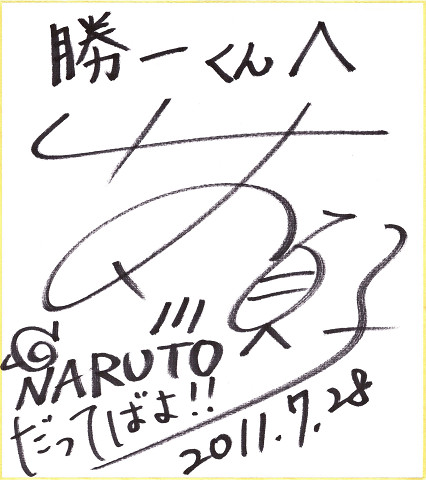 勝一くんへ
NARUTO
だってばよ!!
2011.7.28